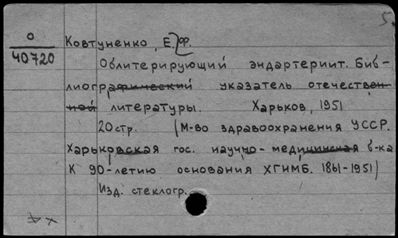 О
40720
Ковтуненко, Е.Ф.
Облитерирующий эндартериит. Биб-
лиографический указатель отечествен-
ной литературы. Харьков, 1951
20стр. (М-во здравоохранения УССР.
Харьковская гос. научно-медицинская б-ка
К 90-летию основания ХГНМБ. 1861-1951)
Изд. стеклогр.